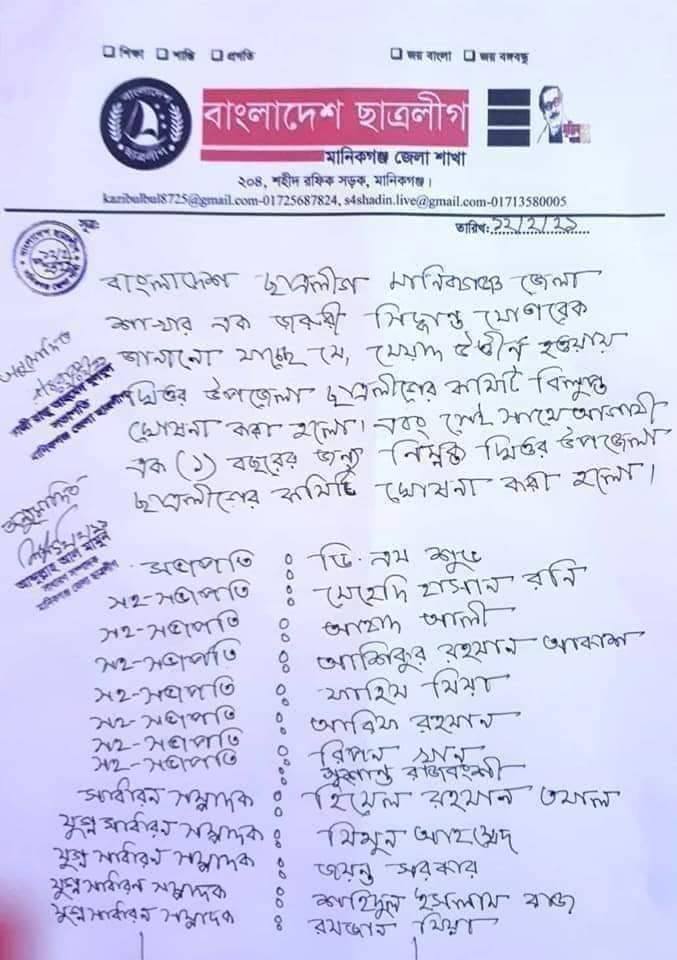 শিক্ষা শান্তি প্রগতি জয় বাংলা জয় বঙ্গবন্ধু
বাংলাদেশ ছাত্রলীগ
বাংলাদেশ ছাত্রলীগ
মানিকগঞ্জ জেলা শাখা
২০৪, শহীদ রফিক সড়ক, মানিকগঞ্জ।
karibulbul8725@gmail.com-01725687824, s4shadin.live@gmail.com-01713580005
সূত্র:
তারিখ: ১২/২/২১
বাংলাদেশ ছাত্রলীগ মানিকগঞ্জ জেলা
শাখার এক জরুরী সিদ্ধান্ত মোতাবেক
জানানো যাচ্ছে যে, মেয়াদ উত্তীর্ন হওয়ায়
ঘিওর উপজেলা ছাত্রলীগের কমিটি বিলুপ্ত
ঘোষনা করা হলো। এবং সেই সাথে আগামী
এক (১) বছরের জন্য নিম্নক্ত ঘিওর উপজেলা
ছাত্রলীগের কমিটি ঘোষনা করা হলো।
অনুমোদিত
সভাপতি
মানিকগঞ্জ জেলা ছাত্রলীগ
অনুমোদিত
আব্দুল্লাহ আল মামুন
সাধারণ সম্পাদক
মানিকগঞ্জ জেলা ছাত্রলীগ
সভাপতি : ভি. এম শুভ
সহ-সভাপতি : মেহেদি হাসান রনি
সহ-সভাপতি : আযাদ আলী
সহ-সভাপতি : আশিকুর রহমান আকাশ
সহ-সভাপতি : ফাহিম মিয়া
সহ-সভাপতি : আরিফ রহমান
সহ-সভাপতি : রিপন খান
সহ-সভাপতি : সুশান্ত রাজবংশী
সাধারন সম্পাদক : হিমেল রহমান তমাল
যুগ্ম সাধারন সম্পাদক : মিমুন আহম্মেদ
যুগ্ম সাধারন সম্পাদক : জয়ন্ত সরকার
যুগ্ম সাধারন সম্পাদক : শাহিদুল ইসলাম রাজ
যুগ্ম সাধারন সম্পাদক : রমজান মিয়া